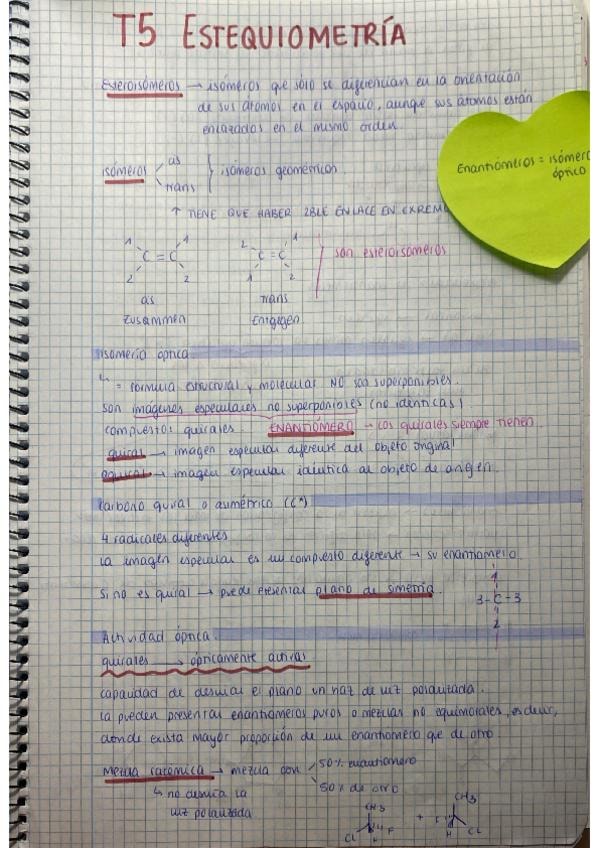 T5 ESTEQUIOMETRÍA
Esteroisómeros → isómeros que sólo se diferencian en la orientación
de sus átomos en el espacio, aunque sus átomos están
enlazados en el mismo orden.
Enantiómeros = isómero
óptico
isómeros cis
trans
isómeros geométricos
↑ TIENE QUE HABER 2BLE ENLACE EN EXREMO
1 1
C = C
2 2
2 1
C = C
1 2
son esteroisómeros
cis trans
Zusammen Entgegen
Isomería óptica
↳ = fórmula estructural y molecular NO son superponibles.
son imágenes especulares no superponibles (no idénticas)
compuestos quirales. ENANTIÓMERO → Los quirales siempre tienen
quiral → imagen especular diferente del objeto original
aquiral → imagen especular idéntica al objeto de origen.
Carbono quiral o asimétrico (C*)
4 radicales diferentes
La imagen especular es un compuesto diferente → su enantiómero
Si no es quiral → puede presentar plano de simetría.
1
3-C-3
2
Actividad óptica.
quirales → ópticamente activas
capacidad de desviar el plano un haz de luz polarizada.
La pueden presentar enantiómeros puros o mezclas no equimolares, es decir,
donde exista mayor proporción de un enantiómero que de otro
Mezcla racémica → mezcla con 50% enantiómero
50% de otro
↳ no desvía la
luz polarizada
CH3 CH3
Cl F + F Cl
H H